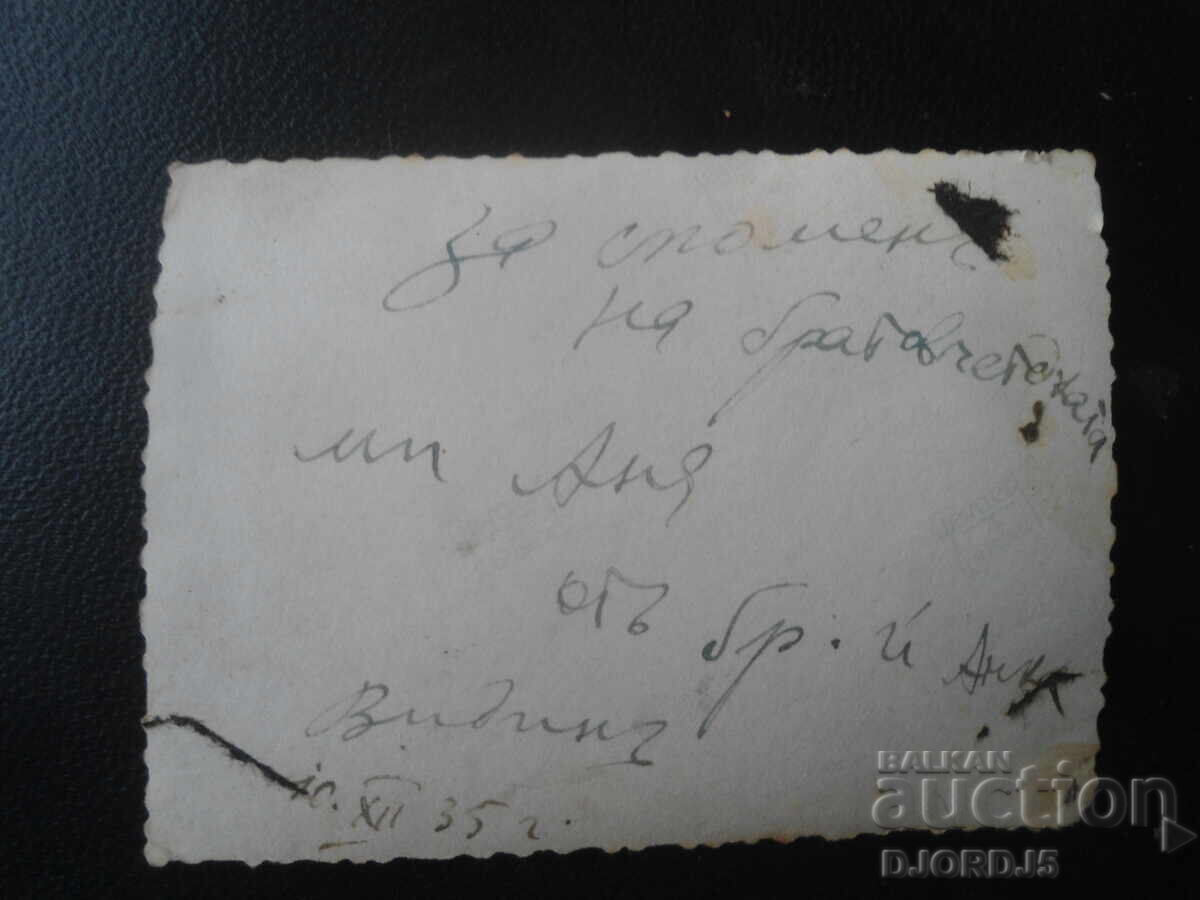 За споменъ
на братовчетката
ми Аня
отъ бр. й
Видинъ
10. XII 35 г.
BALKAN
auction
DJORDJ5